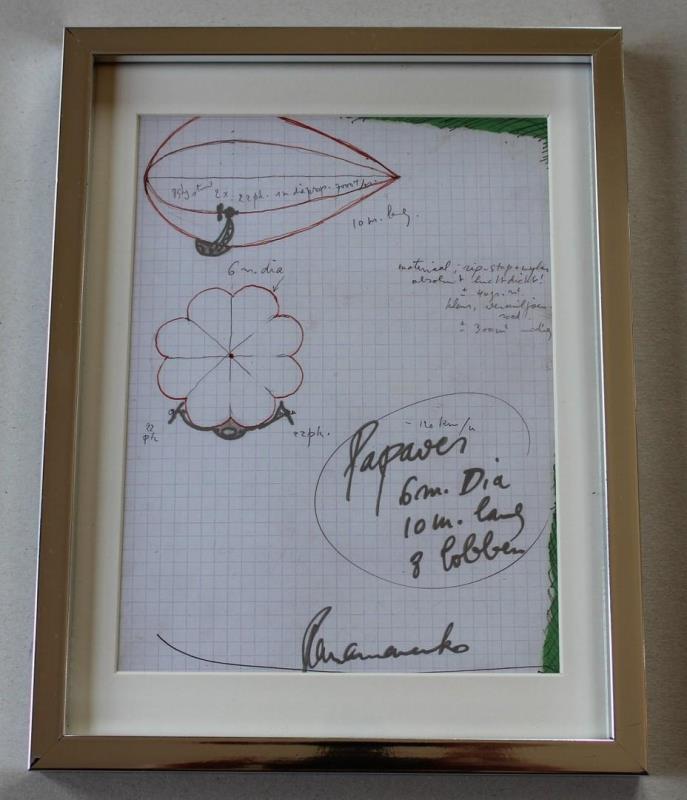 2x 22ph.
10 m. lang.
6 m. dia
materiaal; rip-stop + mylar
absoluut luchtdicht!
± 40gr. m²
klaus, vermiljoen
rood
± 300m²
22
ph.
22ph.
- 120 km/u
Papaver
6 m. Dia
10 m. lang
8 lobben
Panamarenko